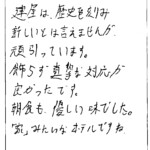 建屋は、歴史を刻み
新しいとは言えませんが
頑張っています。
飾らず真摯な対応が
良かったです。
朝食も、優しい味でした。
"家"みたいなホテルですね